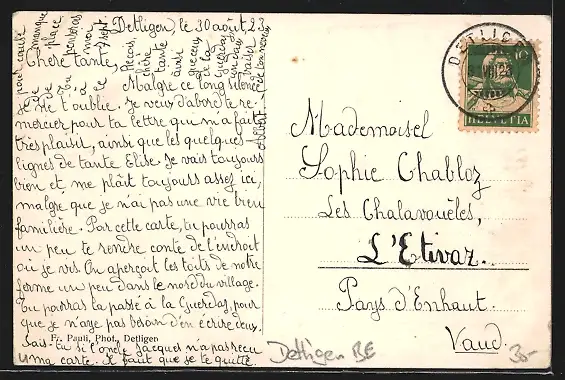 Detligen, le 30 août 23.
Chère tante,
Malgré ce long silence
je ne t'oublie. Je veux d'abord te re-
mercier pour ta lettre qui m'a fait
très plaisir, ainsi que les quelques
lignes de tante Elise. Je vais toujours
bien et me plaît toujours assez ici,
malgré que je n'ai pas une vie bien
familière. Par cette carte, tu pourras
un peu te rendre conte de l'endroit
où je vis. On aperçoit les toits de notre
ferme un peu dans le nord du village.
Tu pourras la passé à la Guerdas, pour
que je n'aye pas besoin d'en écrire deux.
Sais-tu si l'oncle Jacques n'a pas reçu
ma carte. Il faut que je te quitte
Fr. Pauli, Phot., Detligen
DETLIGEN
VIII 23
10
HELVETIA
Mademoisel
Sophie Chabloz
Les Chalavouëles,
L'Etivaz.
Pays d'Enhaut.
Vaud
Detligen BE
30-